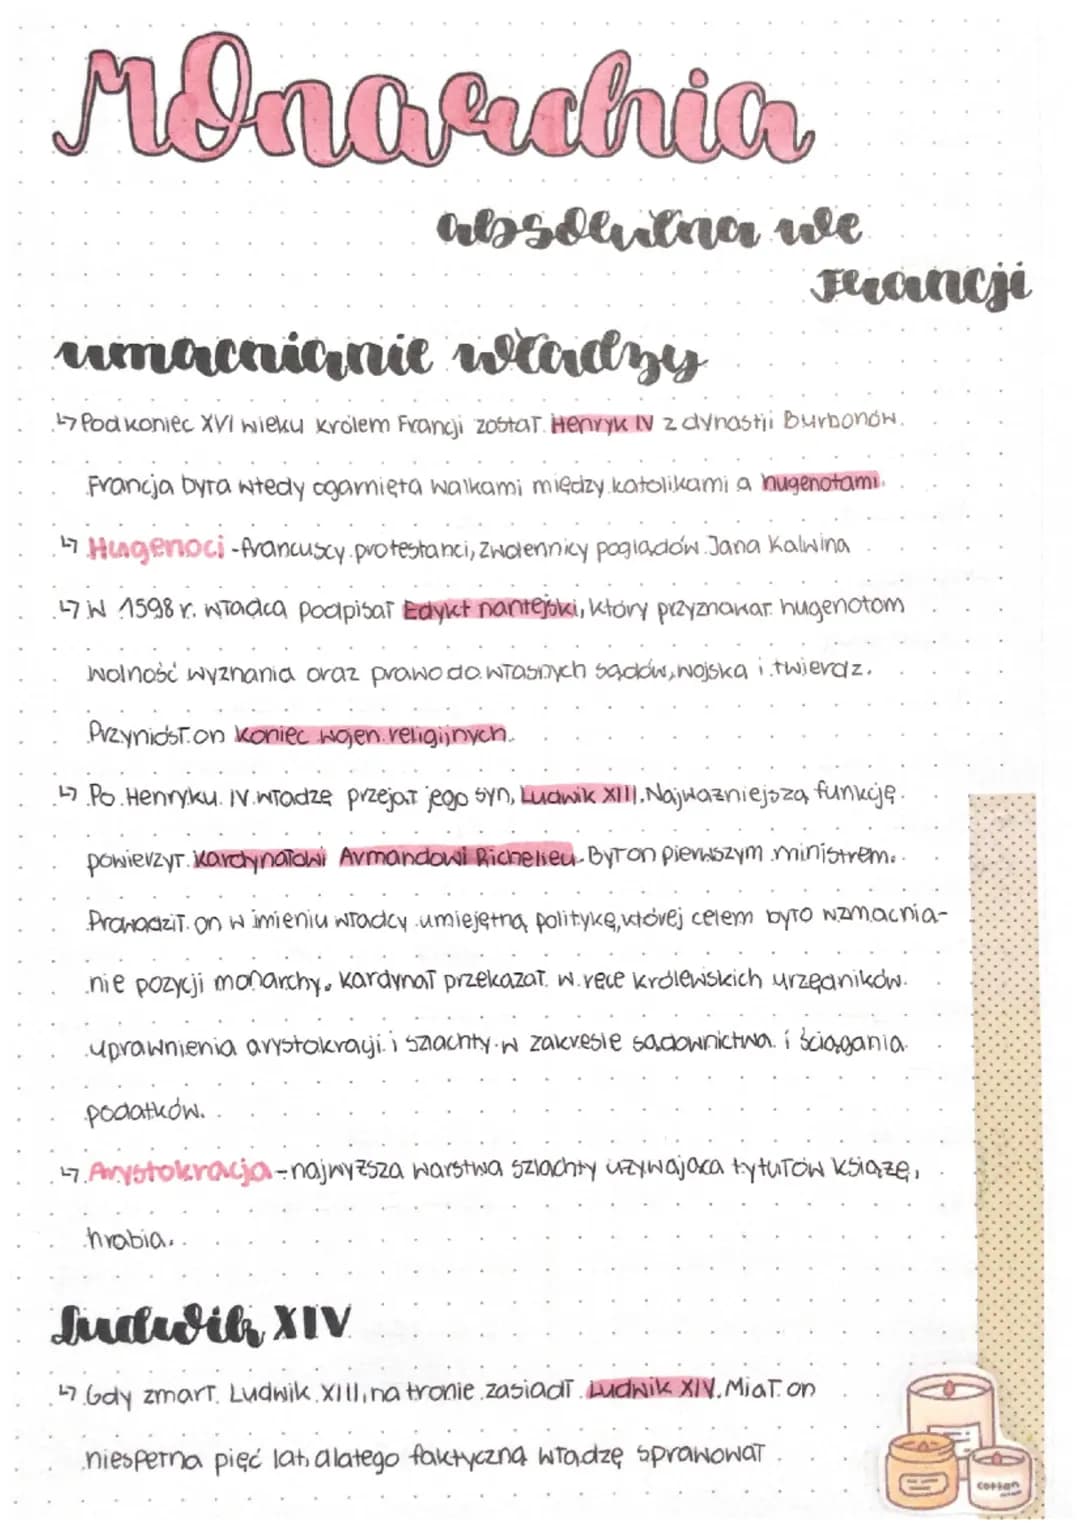 Monarchia
absolutna we
Francji
umacnianie władzy
↳ Pod koniec XVI wieku królem Francji został Henryk IV z dynastii Burbonów.
Francja była wtedy ogarnięta walkami między katolikami a hugenotami.
↳ Hugenoci - francuscy protestanci, zwolennicy poglądów Jana Kalwina
↳ W 1598 r. władca podpisał Edykt nantejski, który przyznawał hugenotom
wolność wyznania oraz prawo do własnych sądów, wojska i twierdz.
Przyniósł on koniec wojen religijnych.
↳ Po Henryku IV władzę przejął jego syn, Ludwik XIII. Najważniejszą funkcję
powierzył kardynałowi Armandowi Richelieu. Był on pierwszym ministrem.
Prowadził on w imieniu władcy umiejętną politykę, której celem było wzmacnia-
nie pozycji monarchy. Kardynał przekazał w ręce królewskich urzędników
uprawnienia arystokracji i szlachty w zakresie sądownictwa i ściągania
podatków.
↳ Arystokracja - najwyższa warstwa szlachty używająca tytułów książę,
hrabia.
Ludwik XIV
↳ Gdy zmarł Ludwik XIII, na tronie zasiadł Ludwik XIV. Miał on
niespełna pięć lat, dlatego faktyczną władzę sprawował
cotton